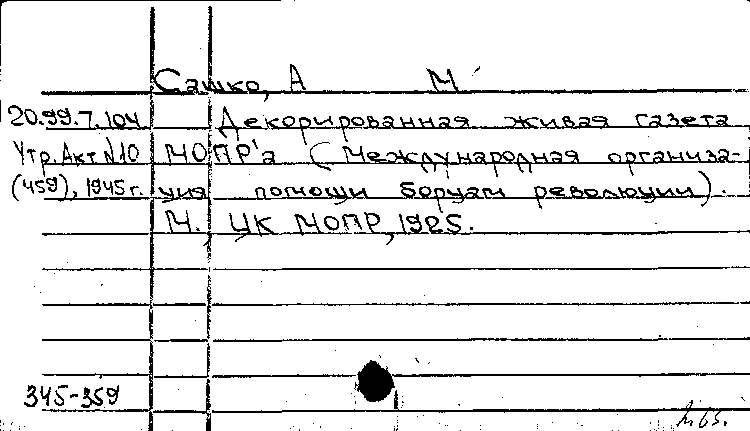 Сашко, А М
20.99.7.104 Декорированная живая газета
Утр. Акт №10 МОПР'а (Международная организа-
(459), 1945 г. ция помощи борцам революции).
М., ЦК МОПР, 1925.
345-359